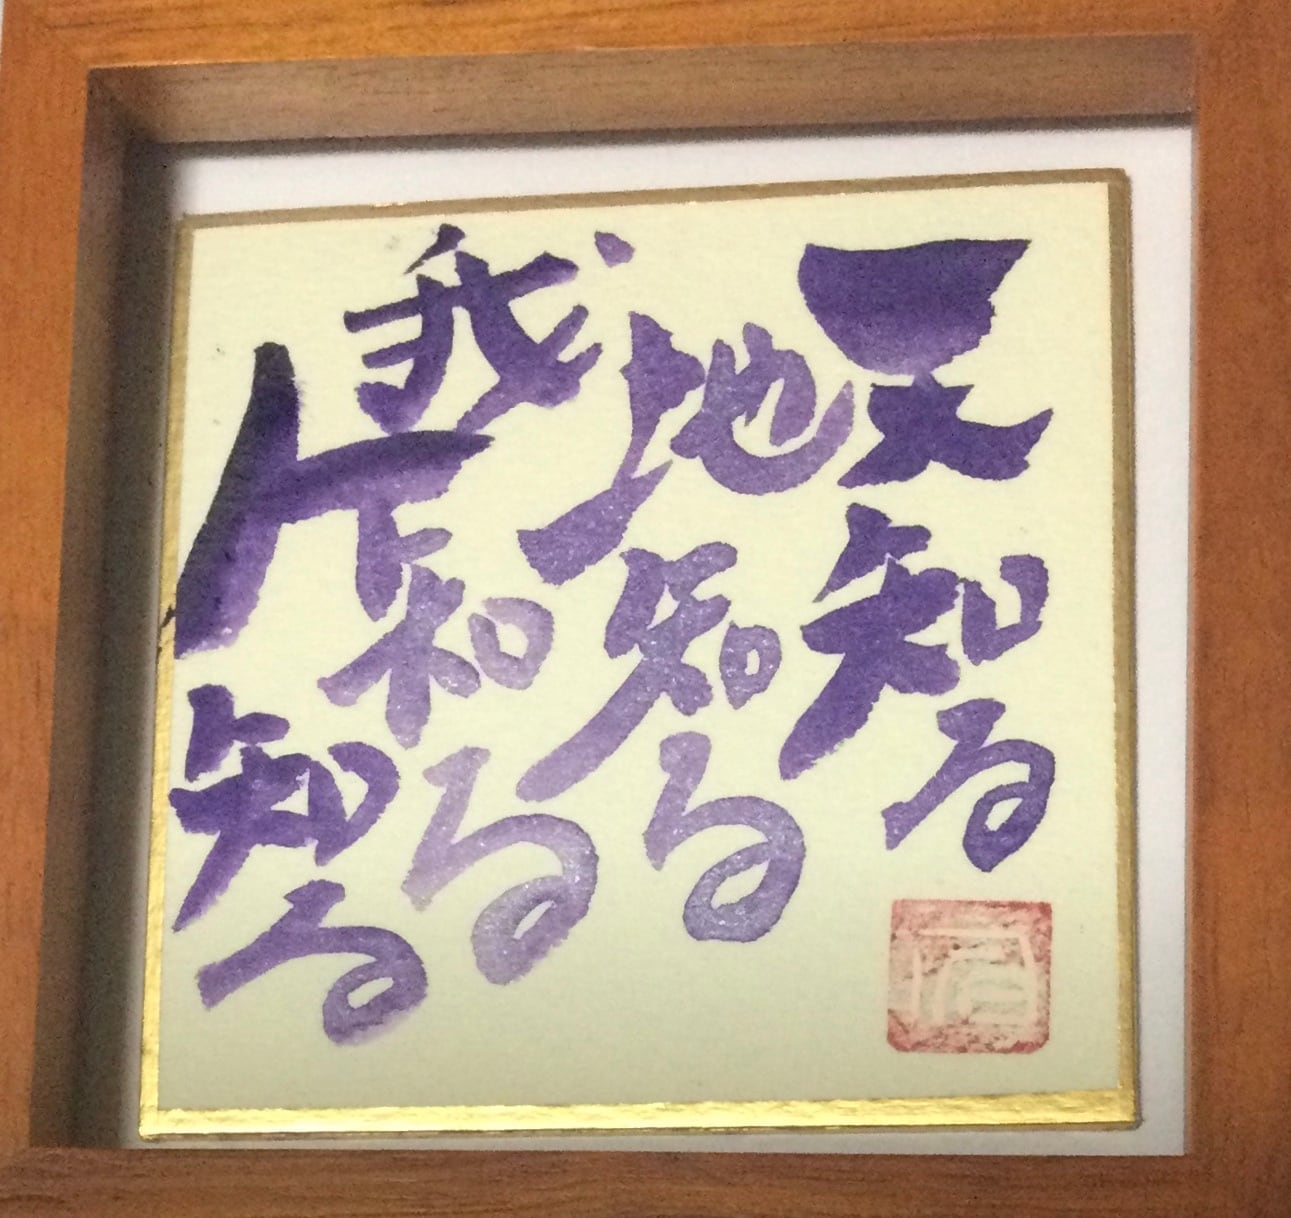 天知る
地知る
我知る
人知る